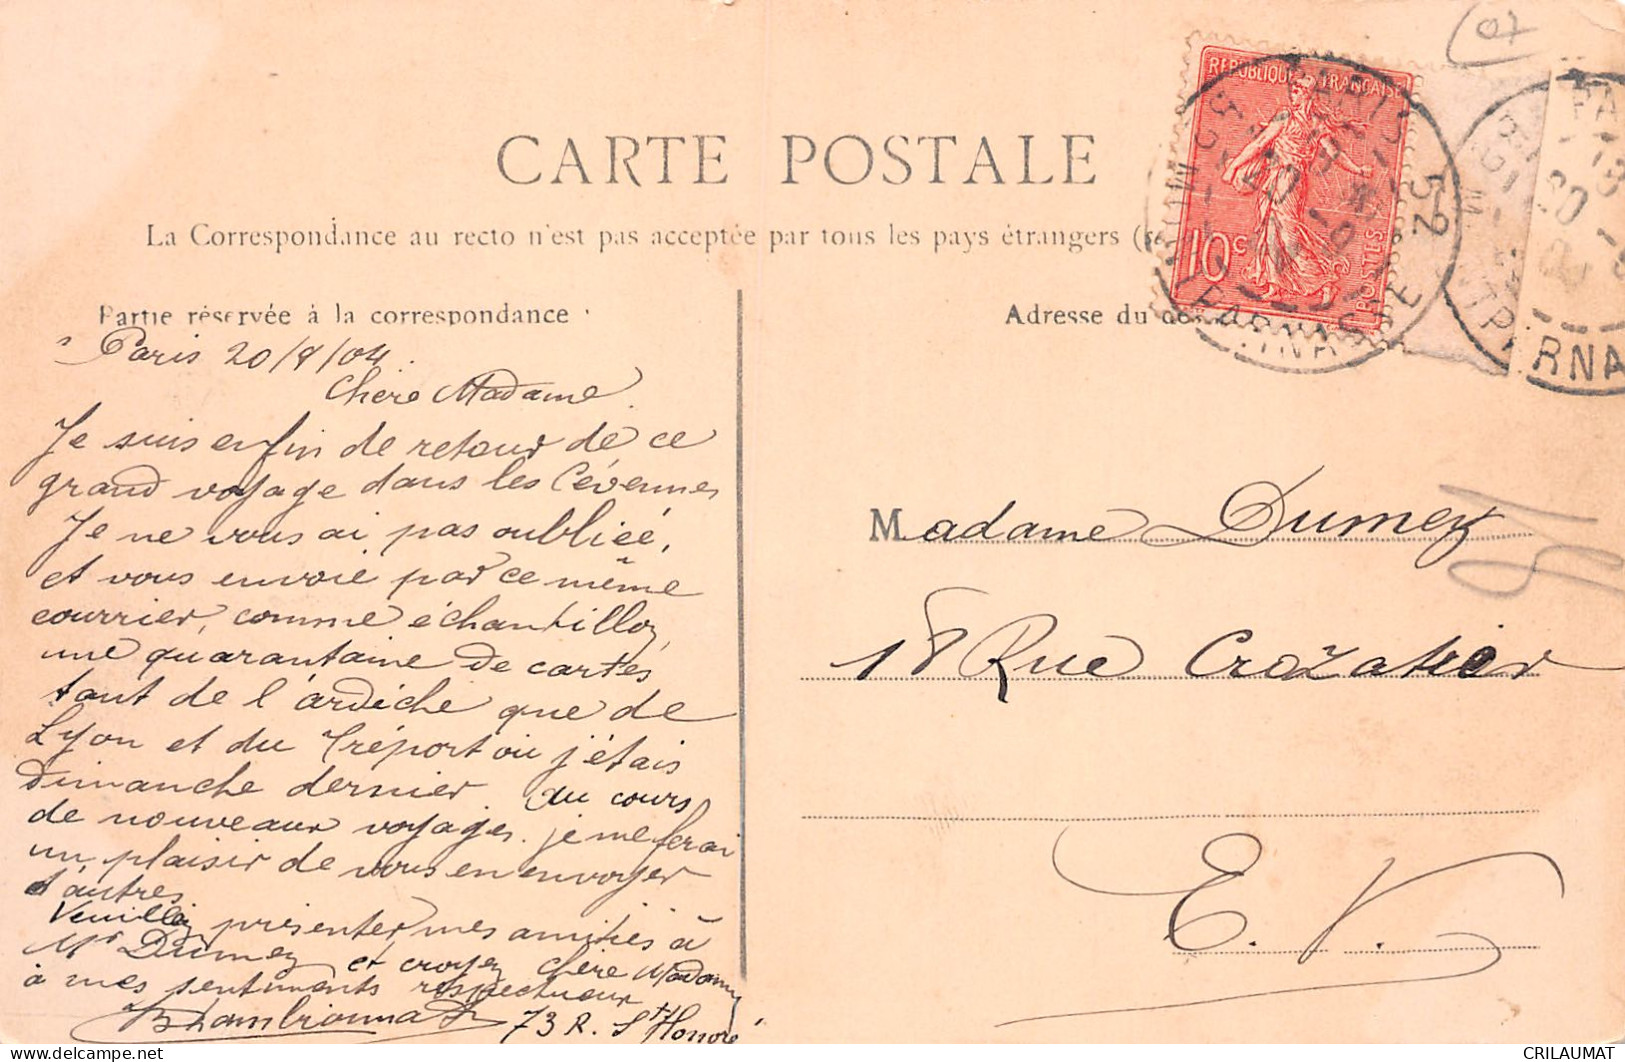 CARTE POSTALE
La Correspondance au recto n'est pas acceptée par tous les pays étrangers (
Partie réservée à la correspondance
Adresse du
REPUBLIQUE FRANÇAISE
10c
POSTES
PARIS
52
RNA
Paris 20/8/04.
Chère Madame
Je suis enfin de retour de ce
grand voyage dans les Cévennes
Je ne vous ai pas oubliée,
et vous envoie par ce même
courrier, comme échantillon,
une quarantaine de cartes
tant de l'ardèche que de
Lyon et du Tréport où j'étais
Dimanche dernier. Au cours
de nouveaux voyages. je me ferai
un plaisir de vous en envoyer
d'autres
Veuillez présenter mes amitiés à
Mr Dumey et croyez chère Madame
à mes sentiments respectueux
73 R. St Honoré
Madame Dumey
18 Rue Crozatier
E. V.
CRILAUMAT